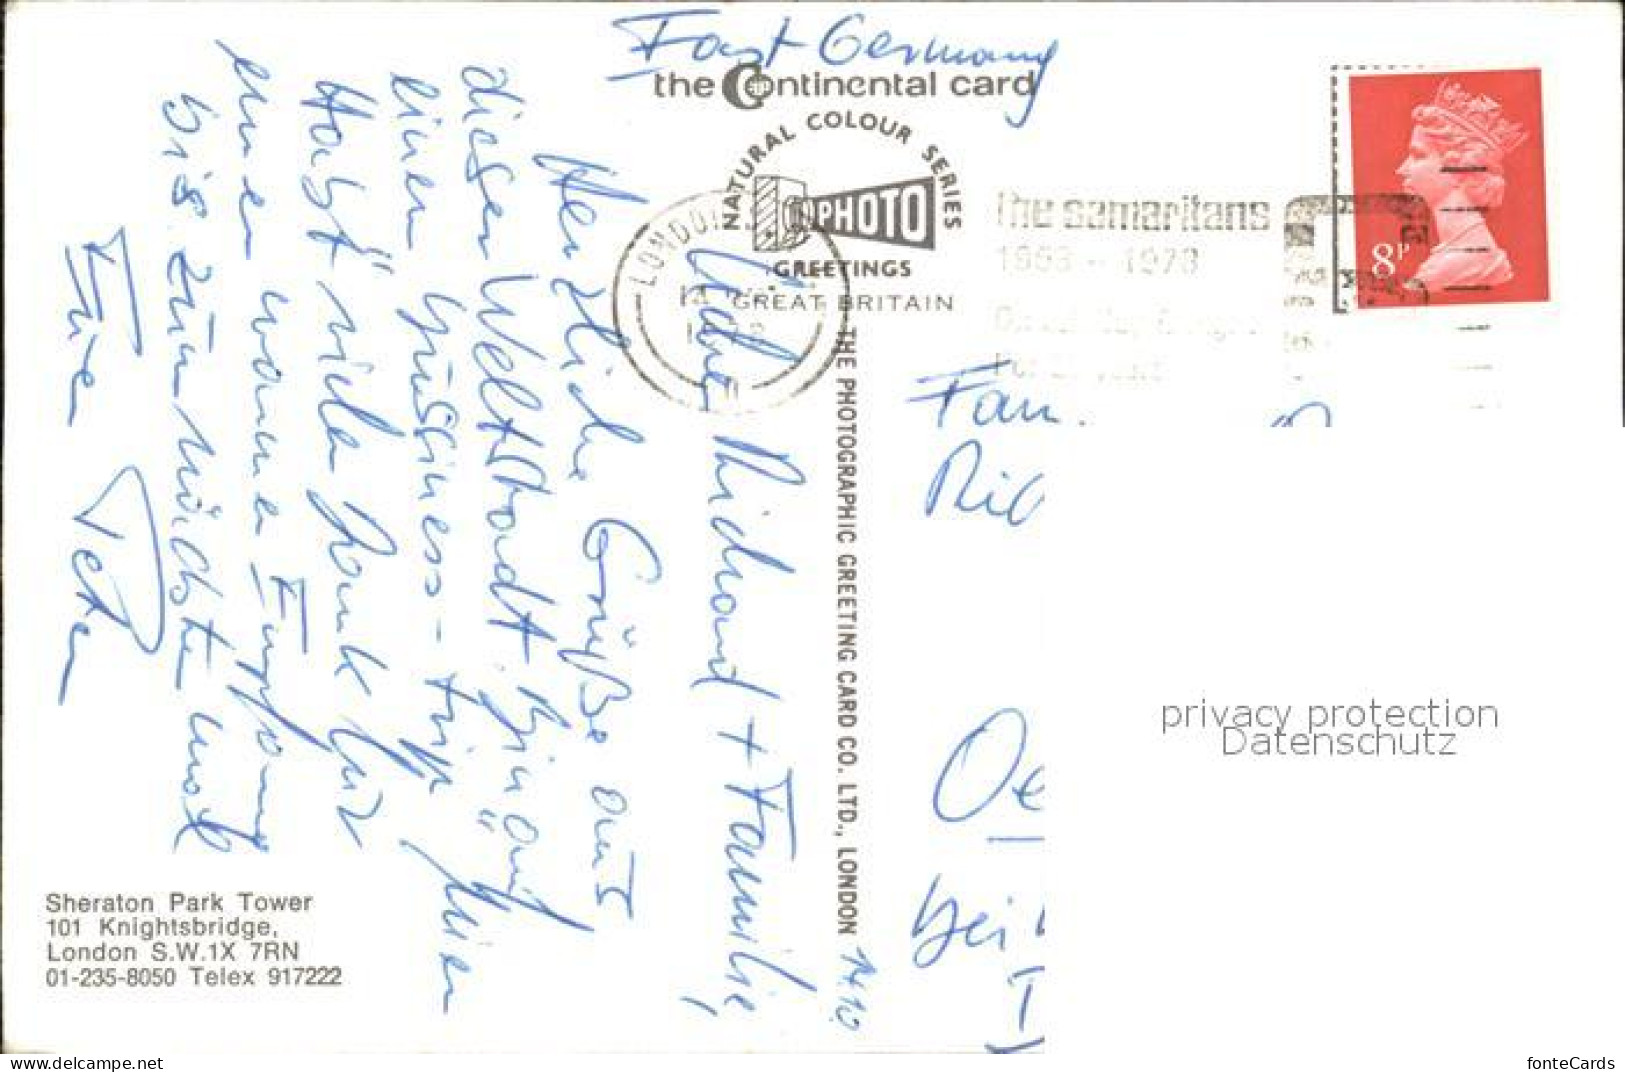 East Germany
the Continental card
NATURAL COLOUR SERIES
PHOTO
GREETINGS
GREAT BRITAIN
LONDON
the samaritans
1953 - 1978
8P
THE PHOTOGRAPHIC GREETING CARD CO. LTD., LONDON
14.10.
Lieber Richard + Familie,
Herzliche Grüße aus
dieser Weltstadt. Bin auf
einen Business-trip hier
Habt viele Dank für
warmen Empfang
bis zum nächsten mal
Eure Peter
Fam.
bei
Sheraton Park Tower
101 Knightsbridge,
London S.W.1X 7RN
01-235-8050 Telex 917222
privacy protection
Datenschutz
https://www.delcampe.net
fonteCards